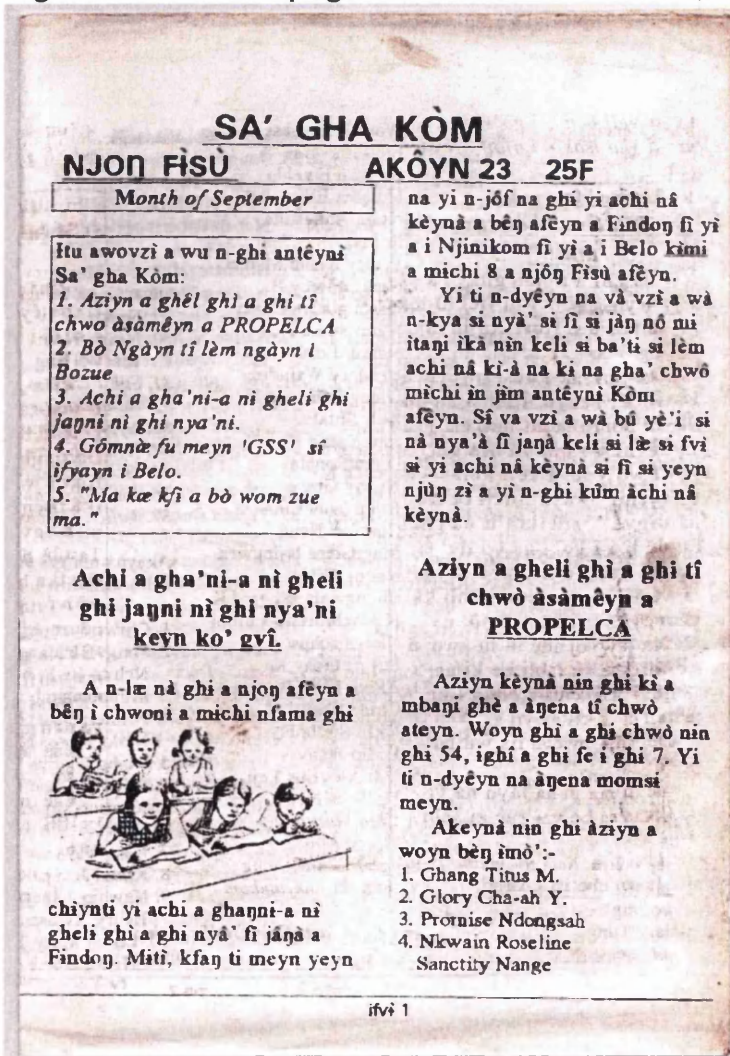 SA' GHA KÒM
NJOŊ FÌSÙ AKÔYN 23 25F
Month of September
Ɨtu awovzɨ̀ a wu n-ghi antêynɨ̀
Sa' gha Kòm:
1. Aziyn a ghêl ghɨ̀ a ghi tɨ̂
chwo àsàmêyn a PROPELCA
2. Bò Ngàyn tɨ̂ lèm ngàyn i
Bozue
3. Achi a gha'ni-a nɨ̀ gheli ghɨ
jaŋni nɨ̀ ghɨ nya'ni.
4. Gómnæ̀ fu meyn 'GSS' sɨ̂
ɨfyayn i Belo.
5. "Ma kæ kfɨ a bò wom zue
ma."
Achi a gha'ni-a nɨ̀ gheli
ghɨ jaŋni nɨ̀ ghɨ nya'ni
keyn ko' gvɨ̂.
A n-læ nà ghi a njoŋ afêyn a
bêŋ ɨ̀ chwoni a michi nfama ghɨ
chɨ̀ynti yi achi a ghaŋni-a nɨ̀
gheli ghɨ̀ a ghi nyâ' fɨ̂ jâŋà a
Fɨndoŋ. Mɨtɨ̀, kfaŋ ti meyn yeyn
na yi n-jôf na ghɨ yi achi nâ
kèynà a bêŋ afêyn a Findoŋ fɨ̂ yɨ̀
a i Njinikom fɨ̂ yɨ̀ a i Belo kɨ̀mɨ
a michi 8 a njôŋ Fɨ̀sù afêyn.
Yi ti n-dyêyn na và vzɨ̀ a wà
n-kya sɨ nyà' sɨ fɨ̂ sɨ jàŋ nô mɨ
ɨtaŋi ɨkà nɨ̀n keli sɨ ba'tɨ sɨ lèm
achi nâ kɨ̀-à na kɨ na gha' chwô
mɨ̀chi ɨ̀n jɨ̀m antêynɨ̀ Kòm
afêyn. Sɨ̂ va vzɨ̀ a wà bú yè'i sɨ
nà nya'à fɨ̂ jaŋà keli sɨ læ sɨ fvɨ
sɨ yi achi nâ kèynà sɨ fɨ̂ sɨ yeyn
njùŋ zɨ̀ a yi n-ghi kûm àchi nâ
kèynà.
Aziyn a gheli ghɨ̀ a ghi tɨ̂
chwò àsàmêyn a
PROPELCA
Aziyn kèynà nɨn ghi kɨ̀ a
mbaŋi ghè a àŋena tɨ̂ chwò
ateyn. Woyn ghɨ a ghɨ chwò nɨn
ghi 54, ɨghɨ̂ a ghɨ fe i ghi 7. Yi
ti n-dyêyn na àŋena momsɨ
meyn.
Akeynà nin ghi àziyn a
woyn bèŋ ɨ̀mò':-
1. Ghang Titus M.
2. Glory Cha-ah Y.
3. Promise Ndongsah
4. Nkwain Roseline
Sanctity Nange
ifvɨ̀ 1